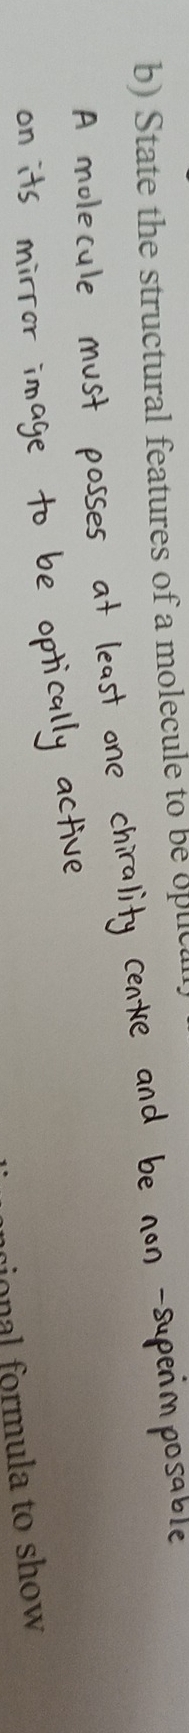 b) State the structural features of a molecule to be optically
A molecule must posses at least one chirality centre and be non-superimposable
on its mirror image to be optically active
formula to show